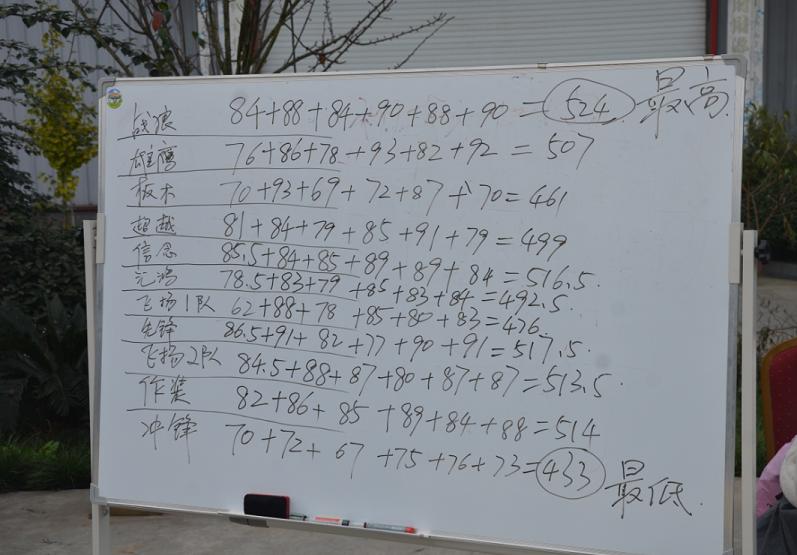 战狼 84+88+84+90+88+90=524 最高
雄鹰 76+86+78+93+82+92=507
板木 70+93+69+72+87+70=461
超越 81+84+79+85+91+79=499
信念 85.5+84+85+89+89+84=516.5.
元鸿 78.5+83+79+85+83+84=492.5.
飞扬1队 62+88+78+85+80+83=476.
先锋 86.5+91+82+77+90+91=517.5.
飞扬2队 84.5+88+87+80+87+87=513.5.
82+86+85+89+84+88=514
冲锋 70+72+67+75+76+73=433 最低.